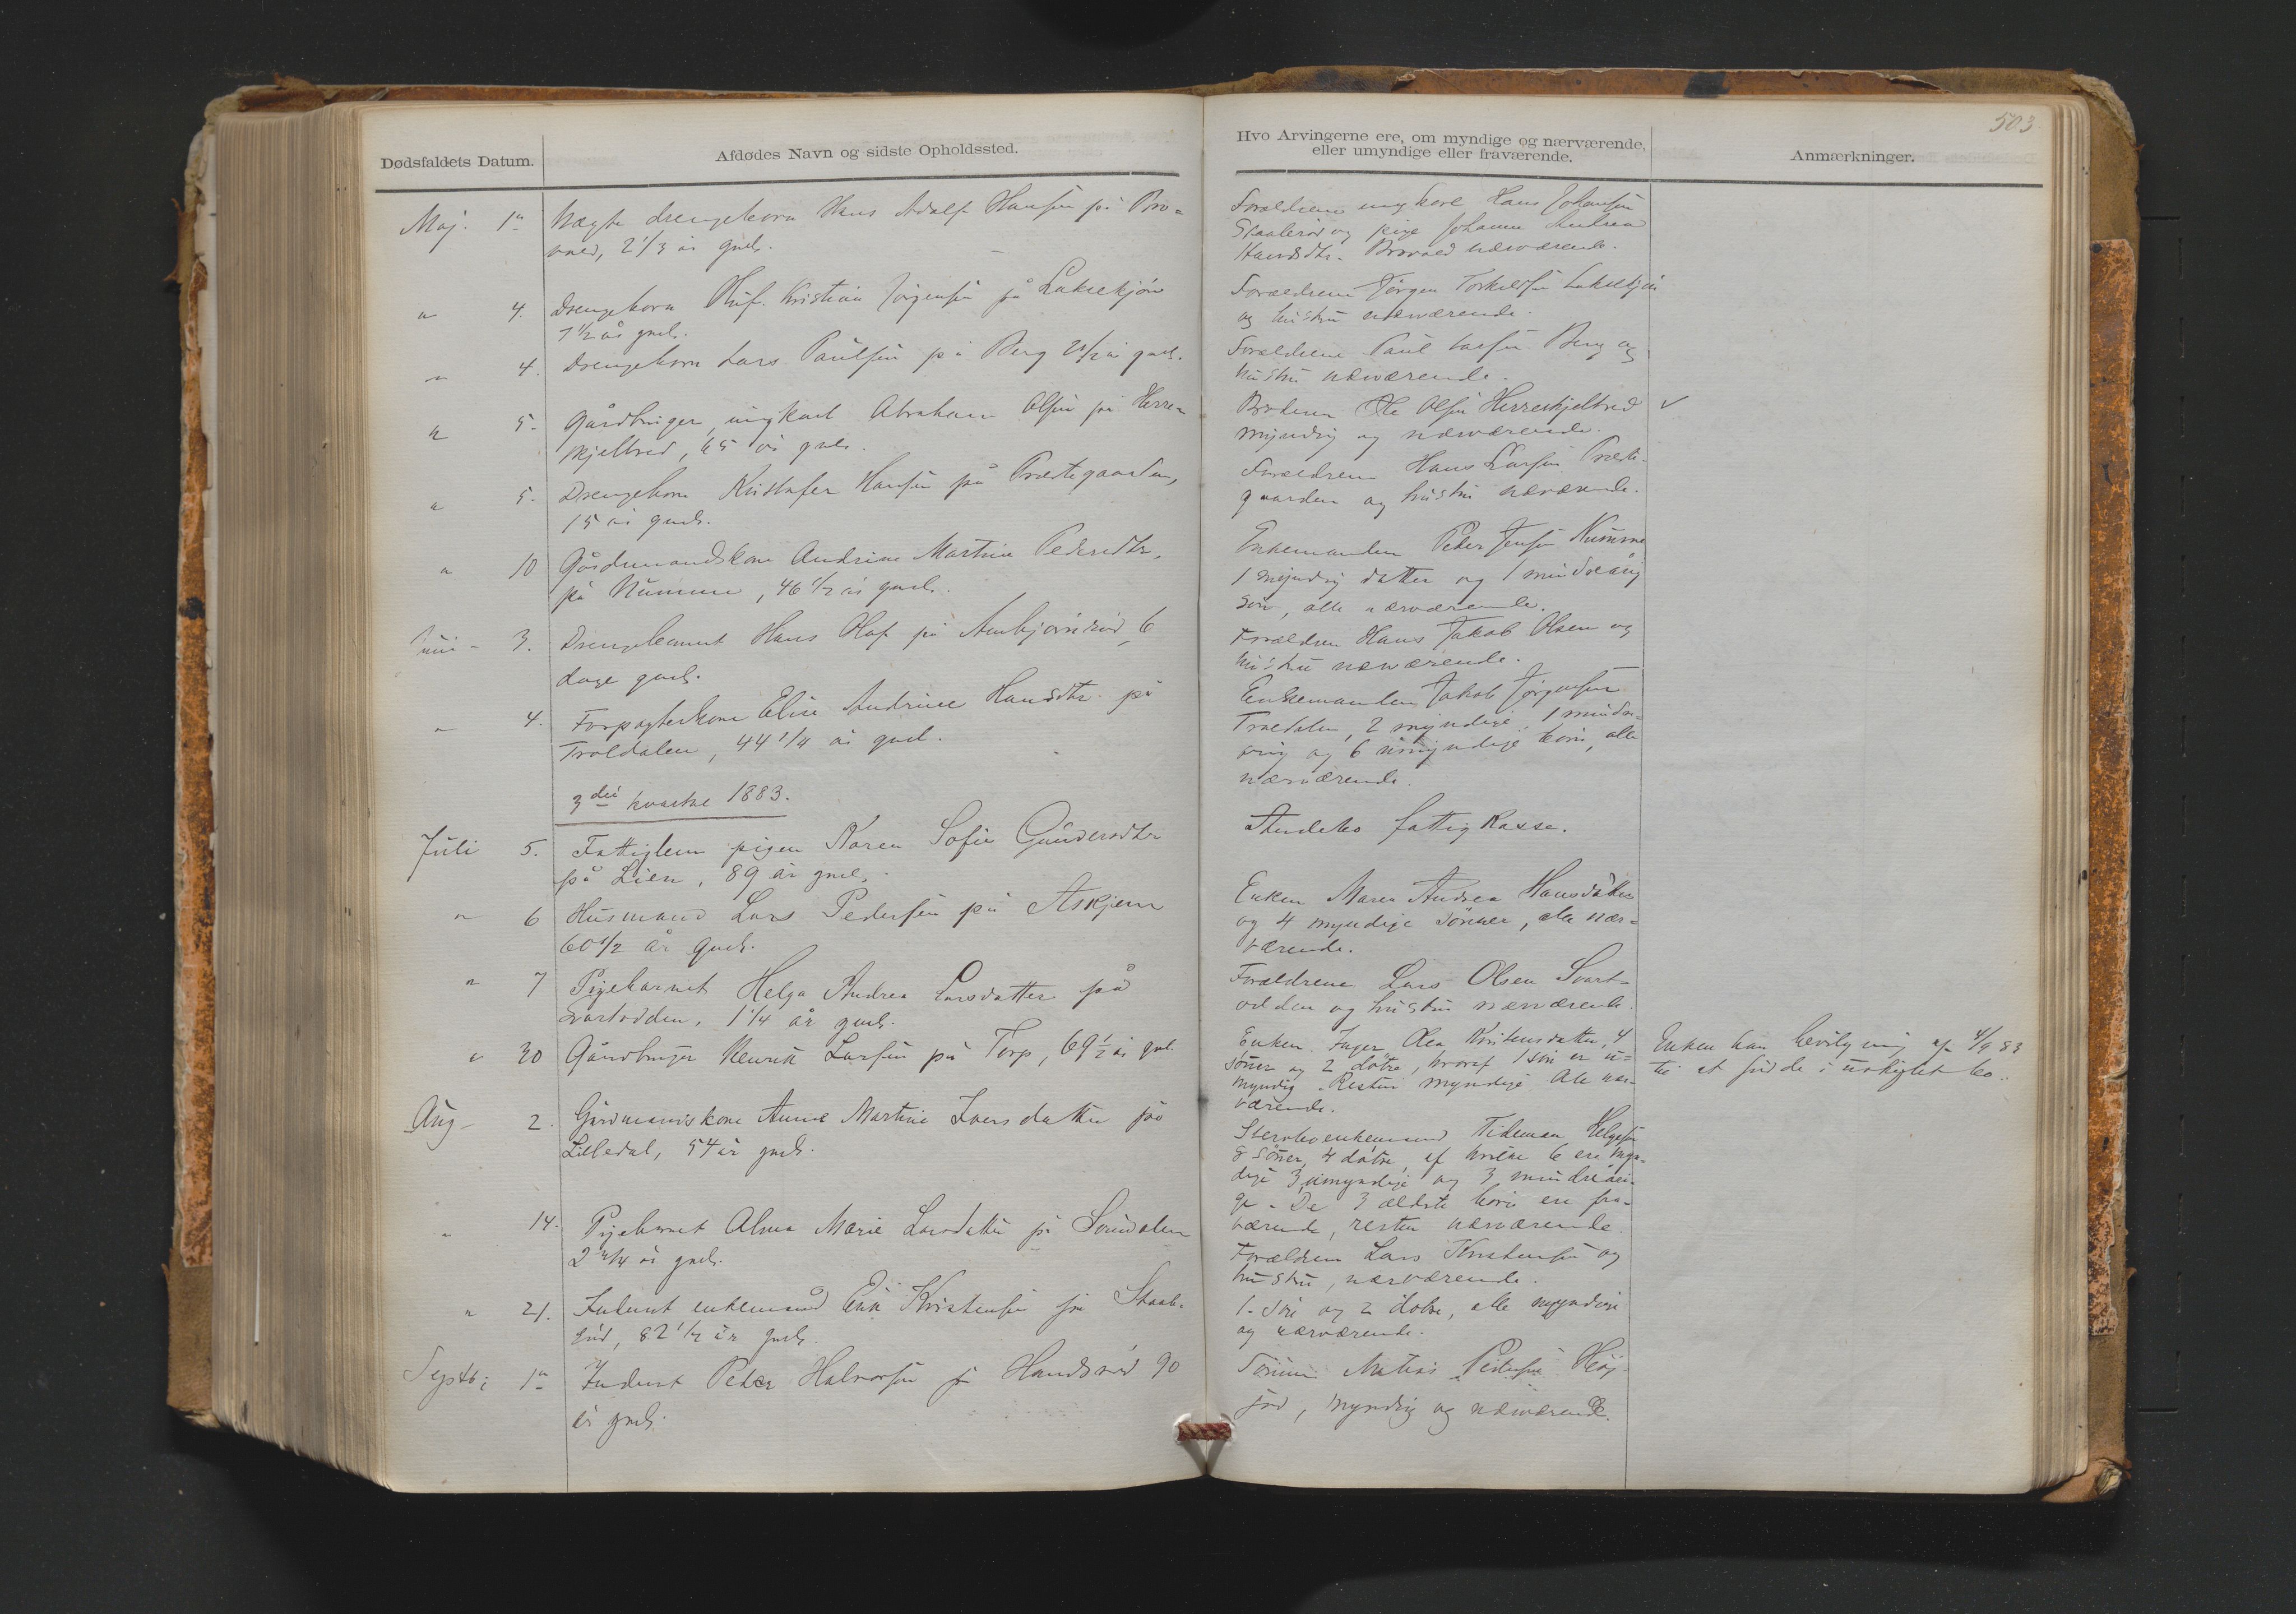 503
Dødsfaldets Datum.
Afdødes Navn og sidste Opholdssted.
Hvo Arvingerne ere, om myndige og nærværende,
eller umyndige eller fraværende.
Anmærkninger.
Maj. 1ª Uægte drengebarn Hans Adolf Hansen på Bro-
vald, 2 1/3 år gml.
Forældrene ungkarl Hans Johansen
og pige Johanne Andrea
Hansdtr. nærværende.
" 4. Drengebarn Kristian Jörgensen på Lakskjön
1 1/2 år gml.
Forældrene Jörgen Torkelsen Lakskjön
og hustru nærværende.
" 4. Drengebarn Lars Paulsen på Berg 2 1/2 år gml.
Forældrene Paul Larsen Berg og
hustru nærværende.
" 5. Gårdbruger, ungkarl Abraham Olsen på Herre-
skjelbred, 65 år gml.
Broderen Ole Olsen Herreskjelbred
myndig og nærværende.
" 5. Drengebarn Kristofer Hansen på Prestegaarden,
15 år gml.
Forældrene Hans Larsen Preste-
gaarden og hustru nærværende.
" 10 Gårdmandskone Andrine Martine Pedersdtr.
på Numme, 46 1/2 år gml.
Enkemanden Peder Jensen Numme
1 myndig datter og 1 mindreårig
sön, alle nærværende.
Juni - 3. Drengebarnet Hans Olaf på 6
dage gml.
Forældrene Hans Jakob Olsen og
hustru nærværende.
" 4. Forpagterkone Elise Andrine Hansdtr. på
Troldalen, 44 1/4 år gml.
Enkemanden Jakob Jörgensen
Troldalen, 2 myndige, 1 mindre-
årig og 6 umyndige börn, alle
nærværende.
3die kvartal 1883.
Juli 5. Fattiglem pigen Karen Sofie Gundersdtr
på Lien, 89 år gml.
Andebo fattigkasse.
" 6 Husmand Lars Pedersen på Askjem
60 1/2 år gml.
Enken Maren Andrea Hansdatter
og 4 myndige sönner, alle nær-
værende.
" 7 Pigebarnet Helga Andrea Larsdatter på
Svartodden, 1 1/4 år gml.
Forældrene Lars Olsen Svart-
odden og hustru nærværende.
" 30 Gårdbruger Henrik Larsen på Torp, 69 1/2 år gml.
Enken Inger Olea Kristensdatter, 4
sönner og 2 dötre, hvoraf 1 sön er u-
myndig. Resten myndige. Alle nær-
værende.
Enken har bevilgning af 4/9 83
til at sidde i uskiftet bo.
Aug - 2. Gårdmandskone Anne Martine Iversdatter på
Lilledal, 54 år gml.
Stervboenkemand Tideman Helgesen
8 sönner, 4 dötre, af hvilke 6 ere myn-
dige 3 umyndige og 3 mindreåri-
ge. De 3 ældste börn ere fra-
værende, resten nærværende.
" 14. Pigebarnet Alma Marie Larsdatter på Sönndalen
2 3/4 år gml.
Forældrene Lars Kristensen og
hustru, nærværende.
" 21. Inderst enkemand Erik Kristensen på
82 1/2 år gml.
1 sön og 2 dötre, alle myndige
og nærværende.
Septb: 1ª Inderst Peder Halvorsen på Hundsröd 90
år gml.
Sönnen Matias Pedersen
myndig og nærværende.